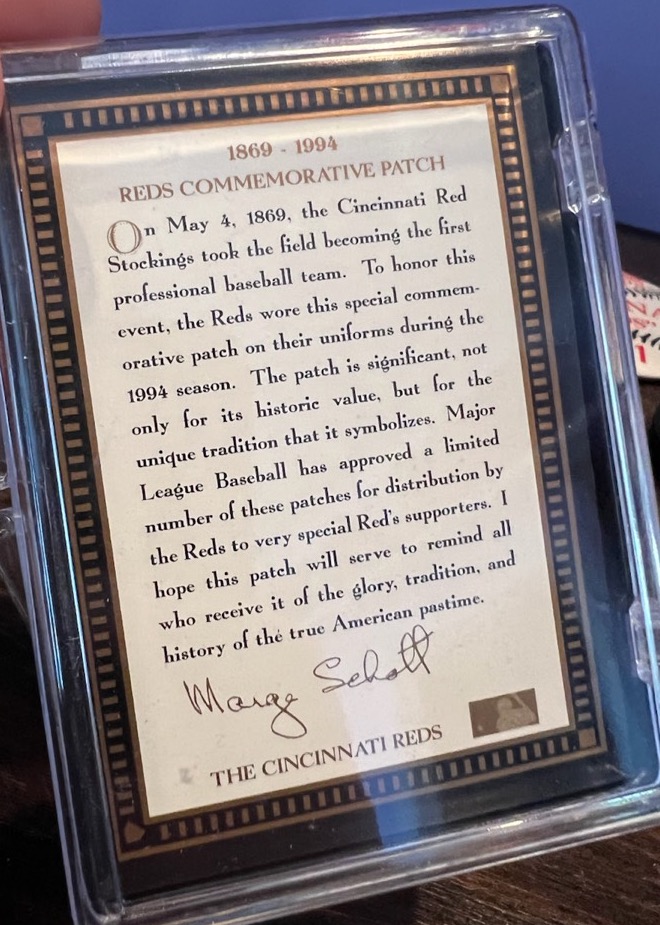 1869 - 1994
REDS COMMEMORATIVE PATCH
On May 4, 1869, the Cincinnati Red
Stockings took the field becoming the first
professional baseball team. To honor this
event, the Reds wore this special commem-
orative patch on their uniforms during the
1994 season. The patch is significant, not
only for its historic value, but for the
unique tradition that it symbolizes. Major
League Baseball has approved a limited
number of these patches for distribution by
the Reds to very special Red's supporters. I
hope this patch will serve to remind all
who receive it of the glory, tradition, and
history of the true American pastime.
Marge Schott
THE CINCINNATI REDS